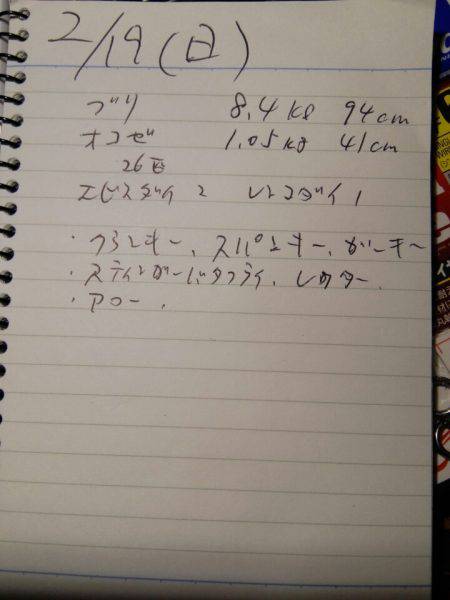 2/19(日)
ブリ 8.4kg 94cm
オコゼ 1.05kg 41cm
26匹
エビスダイ 2 レンコダイ 1
・クランキー、スパンキー、ガーキー
・スティンガーバタフライ、レクター、
・アロー、